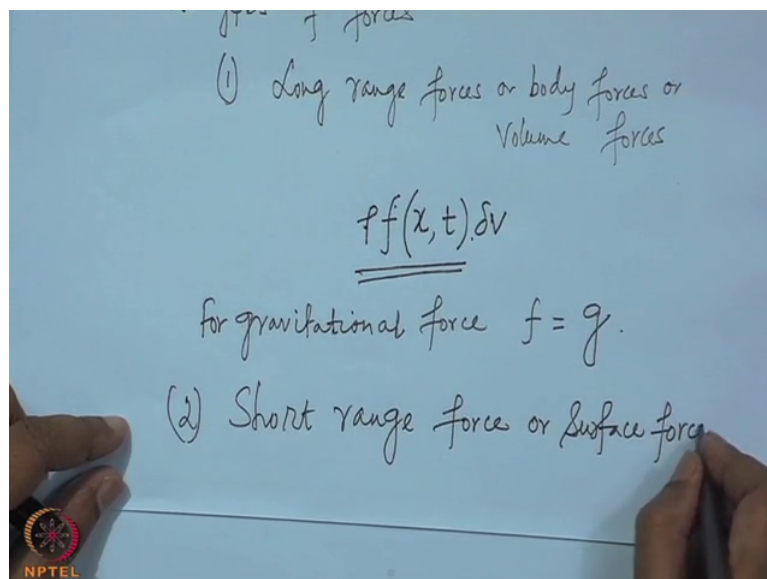 forces
(1) Long range forces or body forces or
Volume forces
ρf(x,t).δv
for gravitational force f = g.
(2) Short range force or Surface force
NPTEL